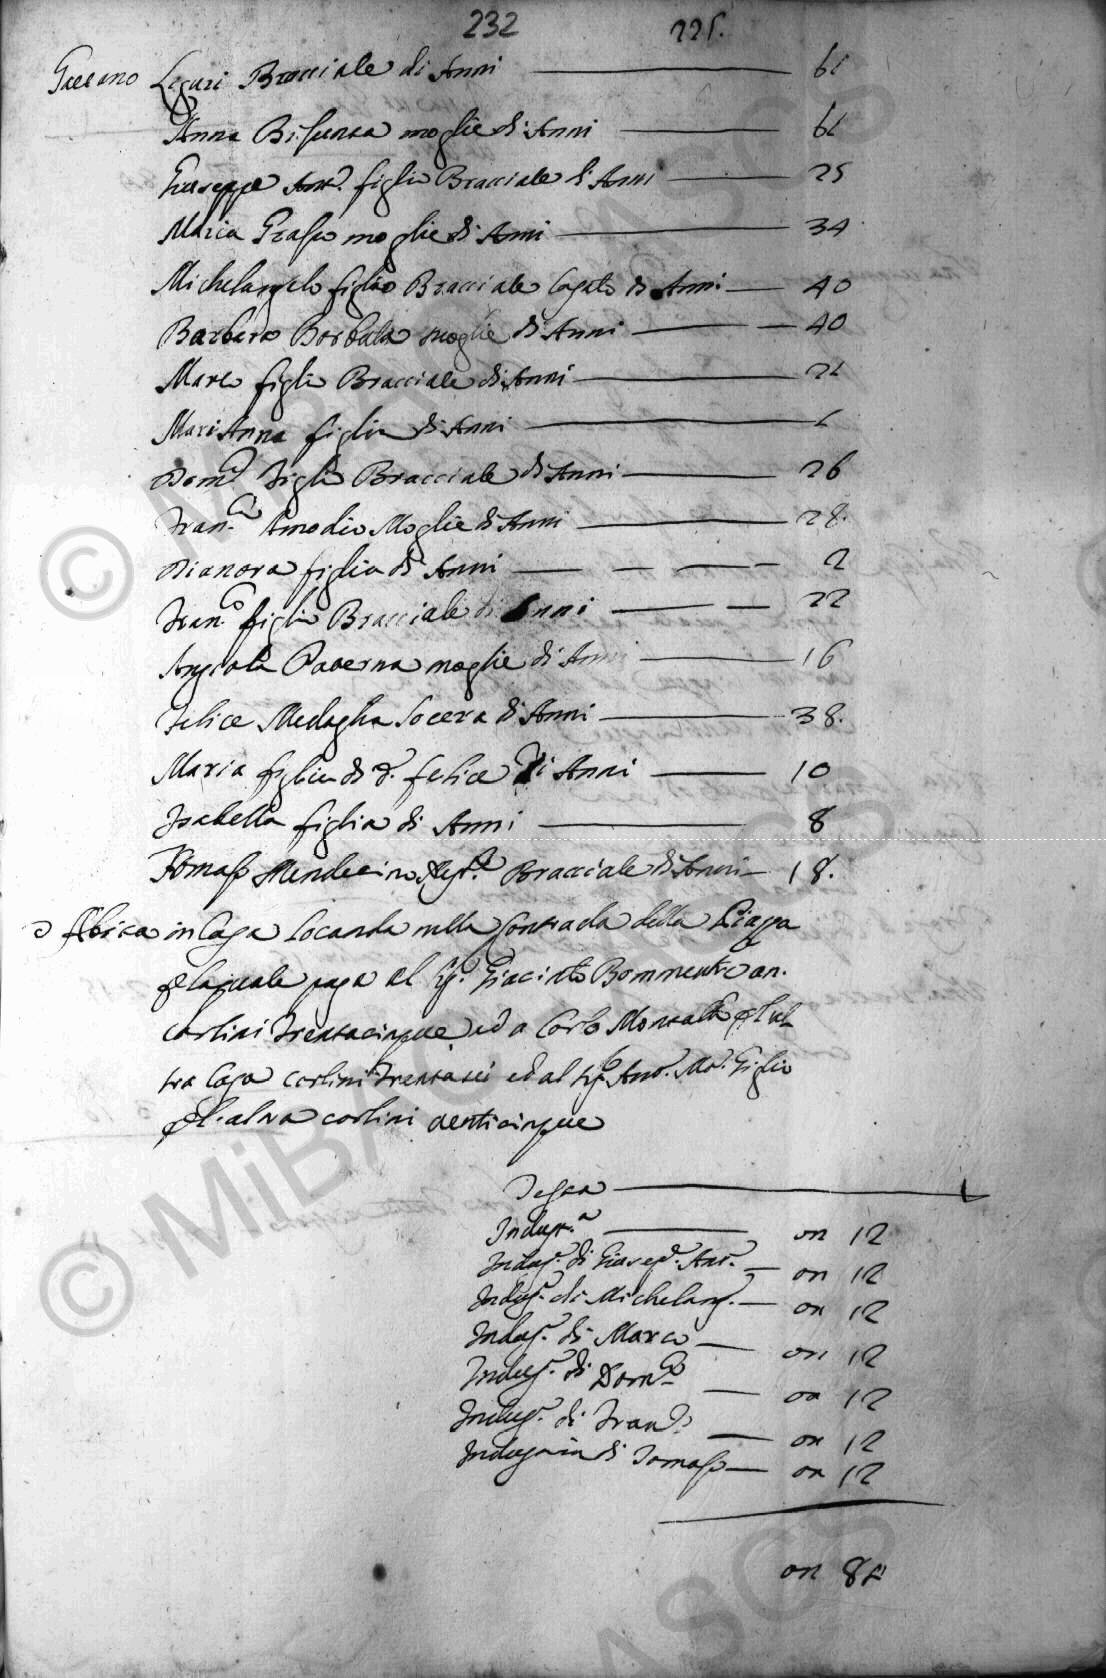 232 225.
Gaetano Liguri Bracciale di Anni 61
Anna Bisunca moglie di Anni 61
Giuseppe Ant.º figlio Bracciale di Anni 25
Maria Grasso moglie di Anni 34
Michelangelo figlio Bracciale di Anni 40
Barbara Borbata moglie di Anni 40
Marco figlio Bracciale di Anni 21
MariAnna figlia di Anni 1
Dom.co figlio Bracciale di Anni 26
Fran.ca Amodio Moglie di Anni 28.
Dianora figlia di Anni 2
Fran.co figlio Bracciale di Anni 22
Angiola Paverna moglie di Anni 16
Felice Medaglia Socera di Anni 38.
Maria figlia di d.ª felice di Anni 10
Isabella figlia di Anni 8
Tomaso Mendicino Bracciale di Anni 18.
Abita in Casa locanda nella Contrada della Piazza
p laquale paga al Sig.r Giacinto Bommentre an.
carlini trentacinque ed a Carlo Montalto p l'al
tra Casa carlini trentasei ed al Sig.r Ant.º M.ª Giglio
p l'altra carlini venticinque
Testa 1
Indust.ª on 12
Indus.ª di Giusep.e Ant.º on 12
Indus.ª di Michelang.º on 12
Indus.ª di Marco on 12
Indus.ª di Dom.co on 12
Indus.ª di Fran.co on 12
Industria di Tomaso on 12
on 84
© MiBAC ASCS
© MiBAC ASCS
ASCS